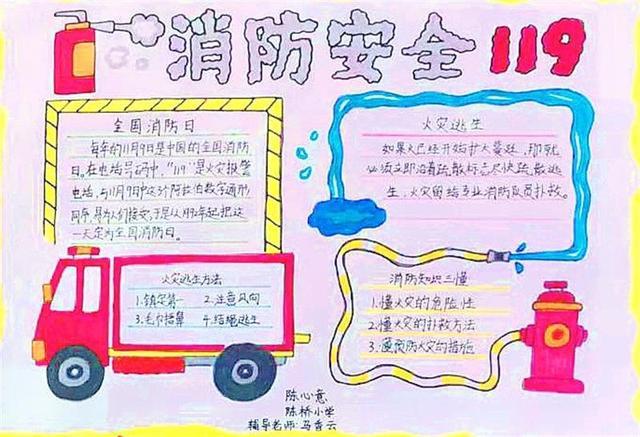 消防安全 119
全国消防日
每年的11月9日是中国的全国消防
日。在电话号码中,"119"是火灾报警
电话,与11月9日中这3个阿拉伯数字
同序,易为人们接受,于是从1992年起把这
一天定为全国消防日。
火灾逃生
如果火已经开始扩大蔓延,那就
必须立即沿着疏散标志尽快疏散逃
生,火灾留给专业消防队员扑救。
火灾逃生方法
1.镇定第一 2.注意风向
3.毛巾捂鼻 4.结绳逃生
消防知识三懂
1.懂火灾的危险性
2.懂火灾的扑救方法
3.懂预防火灾的措施
陈心意
陈桥小学
辅导老师:马香云